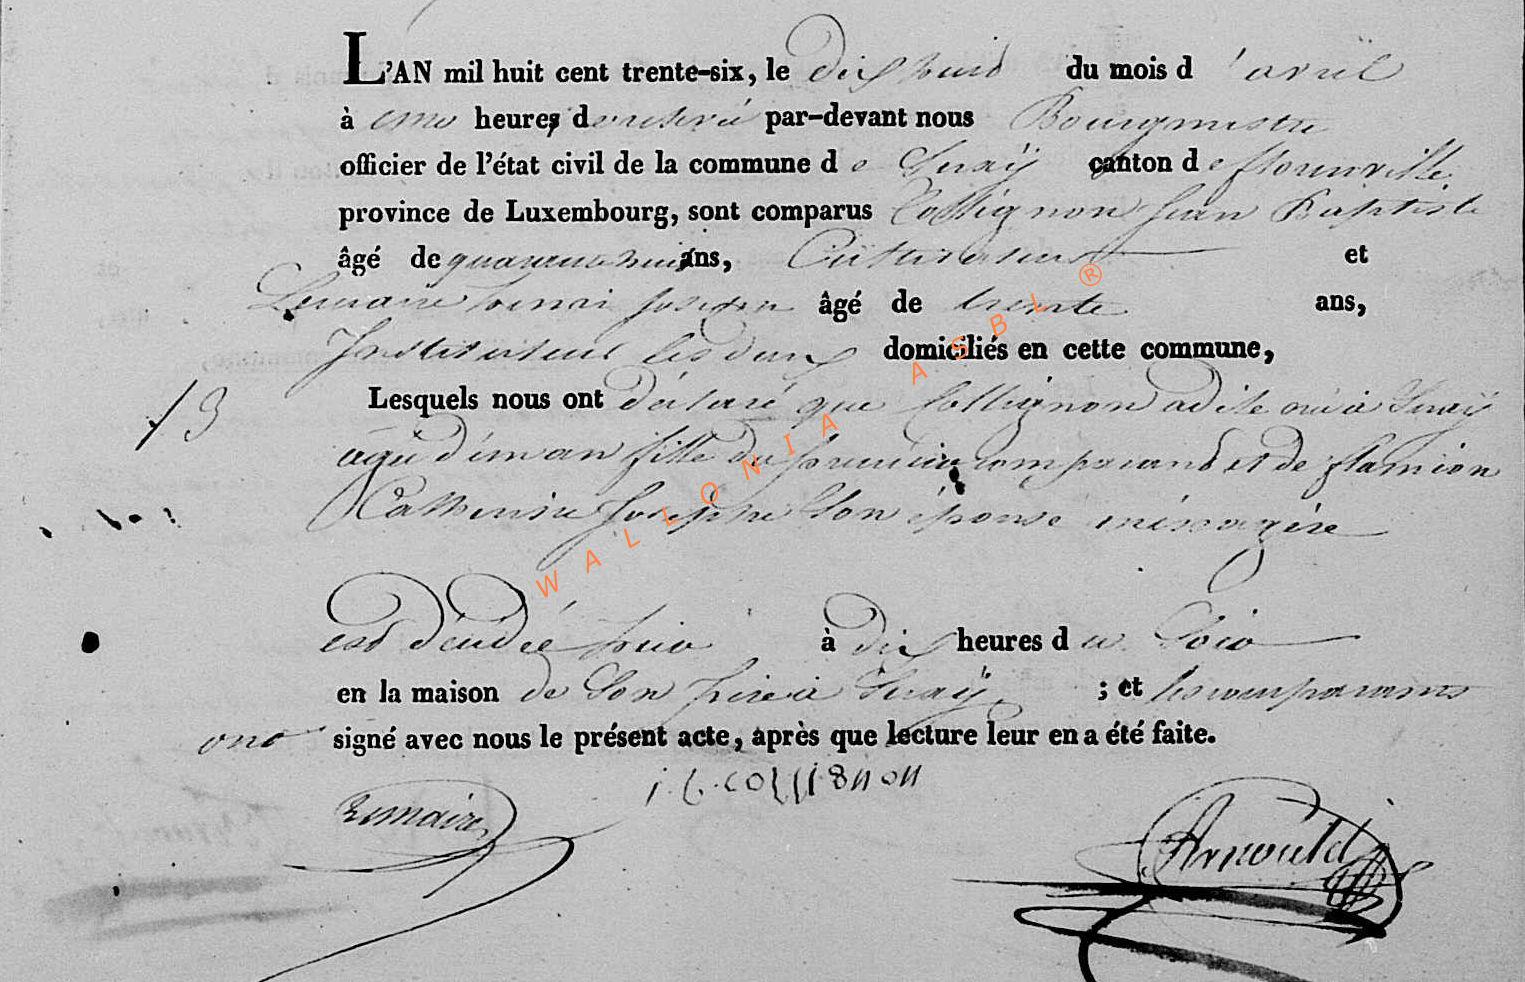 L'AN mil huit cent trente-six, le dix huit du mois d'avril
à une heures de relevé par-devant nous Bourgmestre
officier de l'état civil de la commune de Suxÿ canton de florenville
province de Luxembourg, sont comparus Collignon Jean Baptiste
âgé de quarante huit ans, Cultivateur et
Lemaire henri Joseph âgé de trente ans,
Instituteur les deux domiciliés en cette commune,
13
Lesquels nous ont déclaré que Collignon née à Suxÿ
agée d'un an fille du premier comparant et de flamion
Catherine Josephe Son épouse ménagère
est décédée hier à dix heures du Soir
en la maison de Son père à Suxÿ ; et les comparans
ont signé avec nous le présent acte, après que lecture leur en a été faite.
Lemaire J. b. collignon
Arnould
WALLONIA ASBL ®